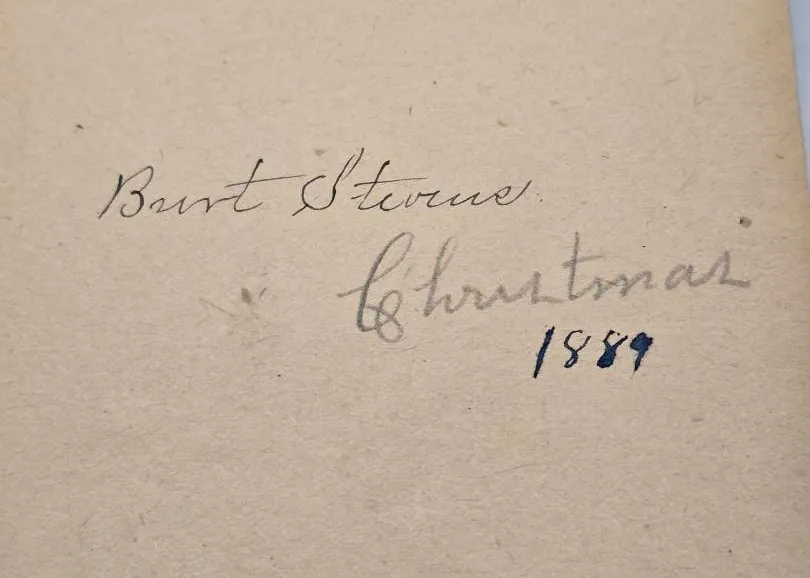 Burt Stevens
Christmas
1889